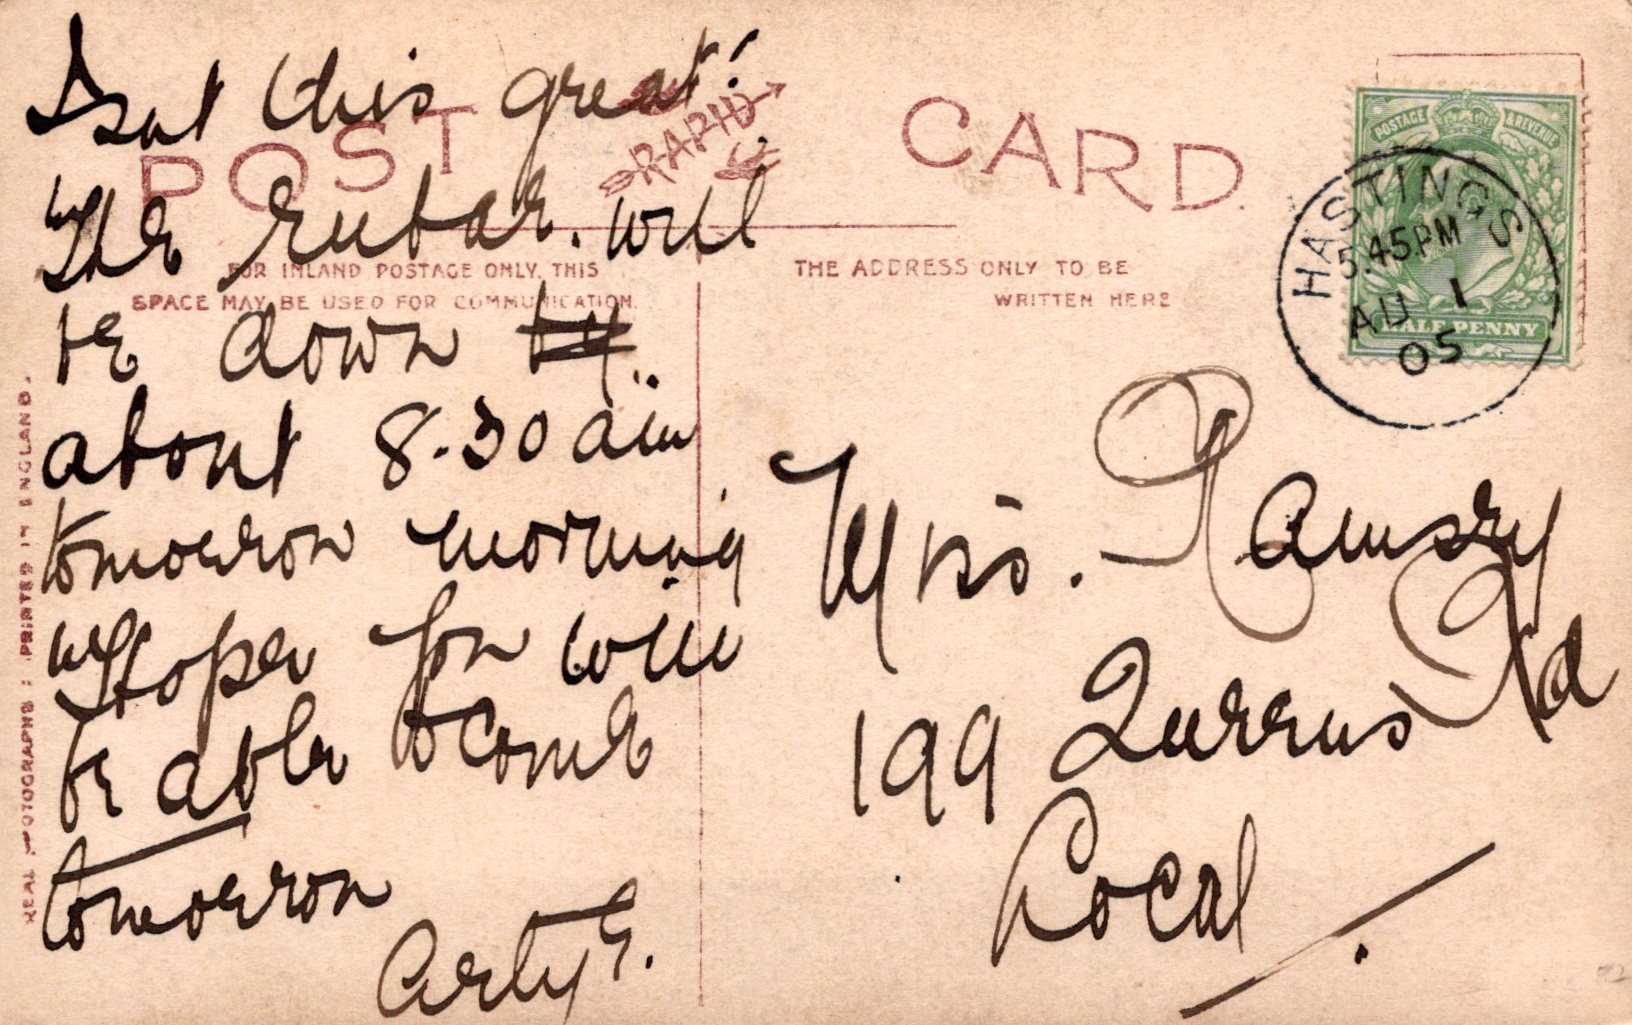 POST CARD
FOR INLAND POSTAGE ONLY, THIS
SPACE MAY BE USED FOR COMMUNICATION.
THE ADDRESS ONLY TO BE
WRITTEN HERE
REAL PHOTOGRAPHS : PRINTED IN ENGLAND.
POSTAGE & REVENUE
HALF PENNY
HASTINGS
5.45PM
AU 1
05
Isnt this great!
The will
be down by
about 8.30 am
tomorrow morning
Hoper you will
be able to come
tomorrow
Mrs. Ramsey
199 Queens Rd
Local